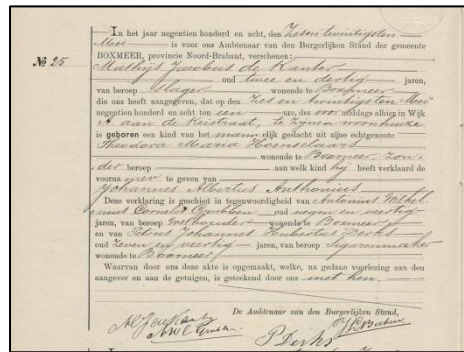 In het jaar negentien honderd en acht, den Zesen twintigsten
Mei is voor ons Ambtenaar van den Burgerlijken Stand der gemeente
BOXMEER, provincie Noord-Brabant, verschenen:
№ 25
Mathijs Jacobus de Kanter
oud twee en dertig jaren,
van beroep Slager wonende te Boxmeer
die ons heeft aangegeven, dat op den Zes en twintigsten Mei
negentien honderd en acht ten een ure, des voor middags alhier in Wijk
A aan de straat, te zijnen woonhuize
is geboren een kind van het mann elijk geslacht uit zijne echtgenoote
Theodora Maria Hoenselaars
wonende te Boxmeer, zon-
der beroep aan welk kind hij heeft verklaard de
voorna men te geven van
Johannes Albertus Anthonius
Deze verklaring is geschied in tegenwoordigheid van Antonius Wilhel-
mus Cornelis oud negen en veertig
jaren, van beroep wonende te Boxmeer
en van Petrus Johannes Hubertus Derks
oud Zeven en veertig jaren, van beroep Sigarenmaker
wonende te Boxmeer
Waarvan door ons deze akte is opgemaakt, welke, na gedane voorlezing aan den
aangever en aan de getuigen, is geteekend door ons met hen.
De Ambtenaar van den Burgerlijken Stand,
P Derks